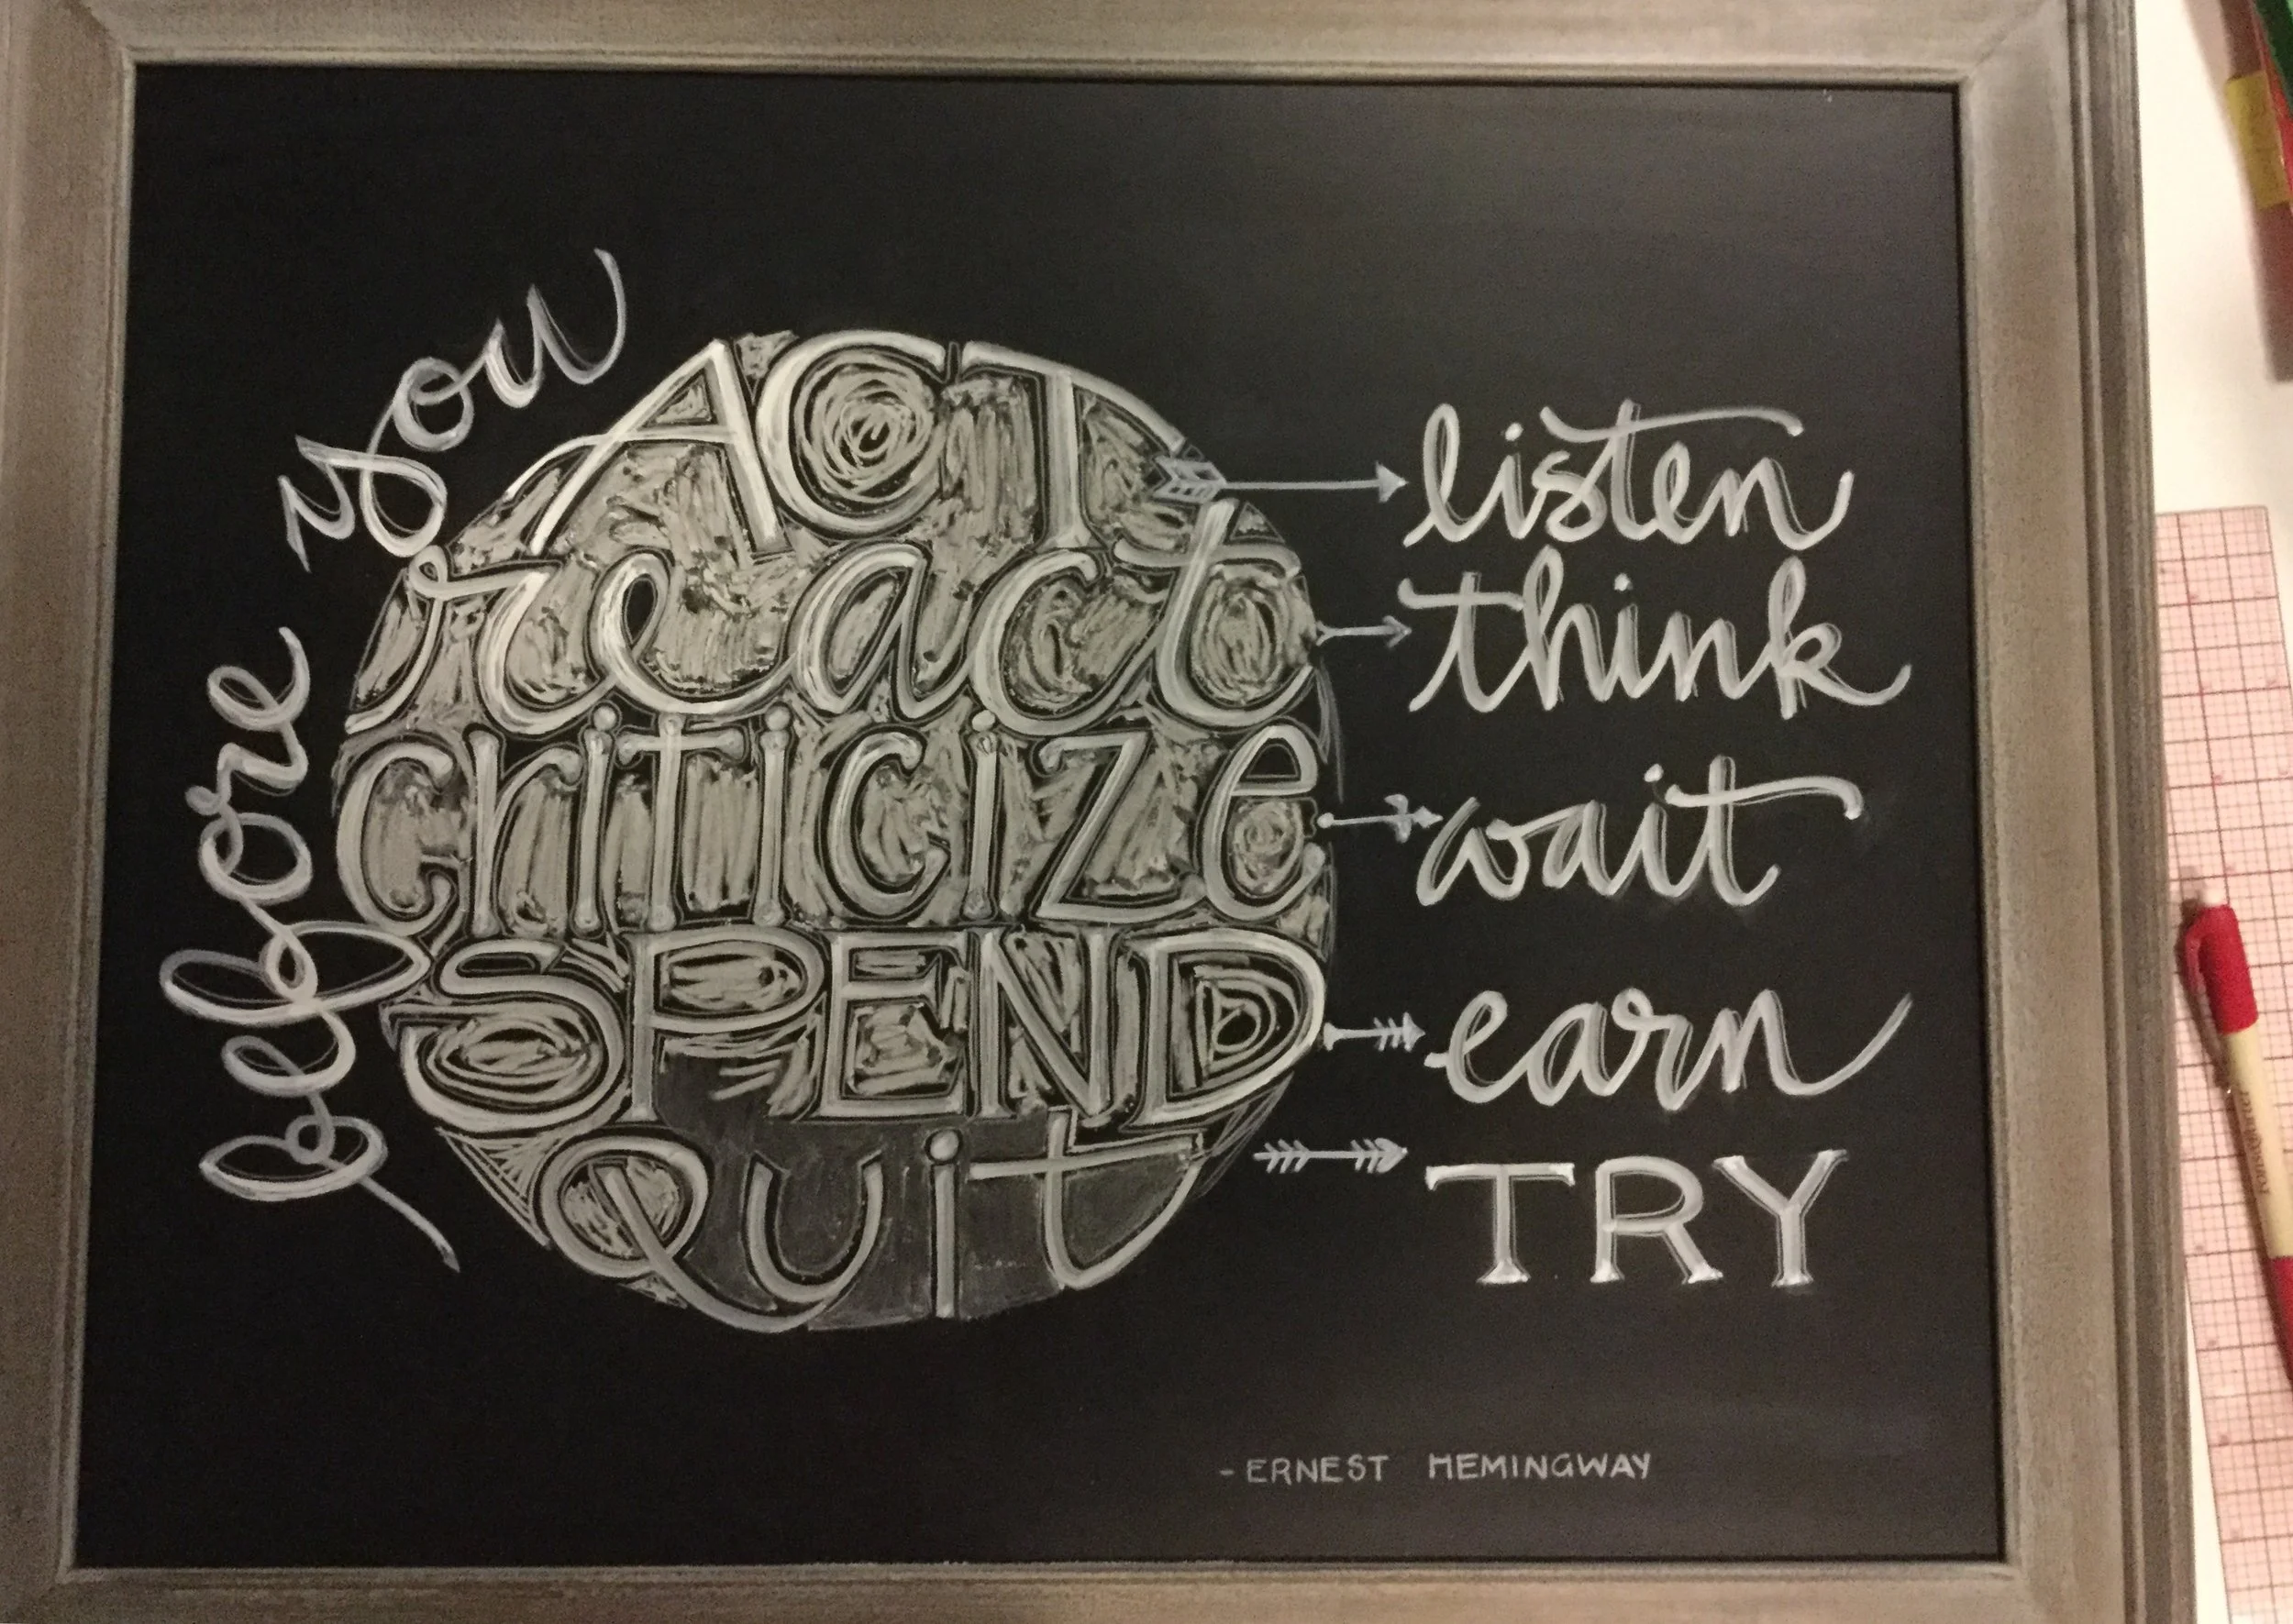 before you
ACT listen
react think
criticize wait
SPEND earn
Quit TRY
- ERNEST HEMINGWAY